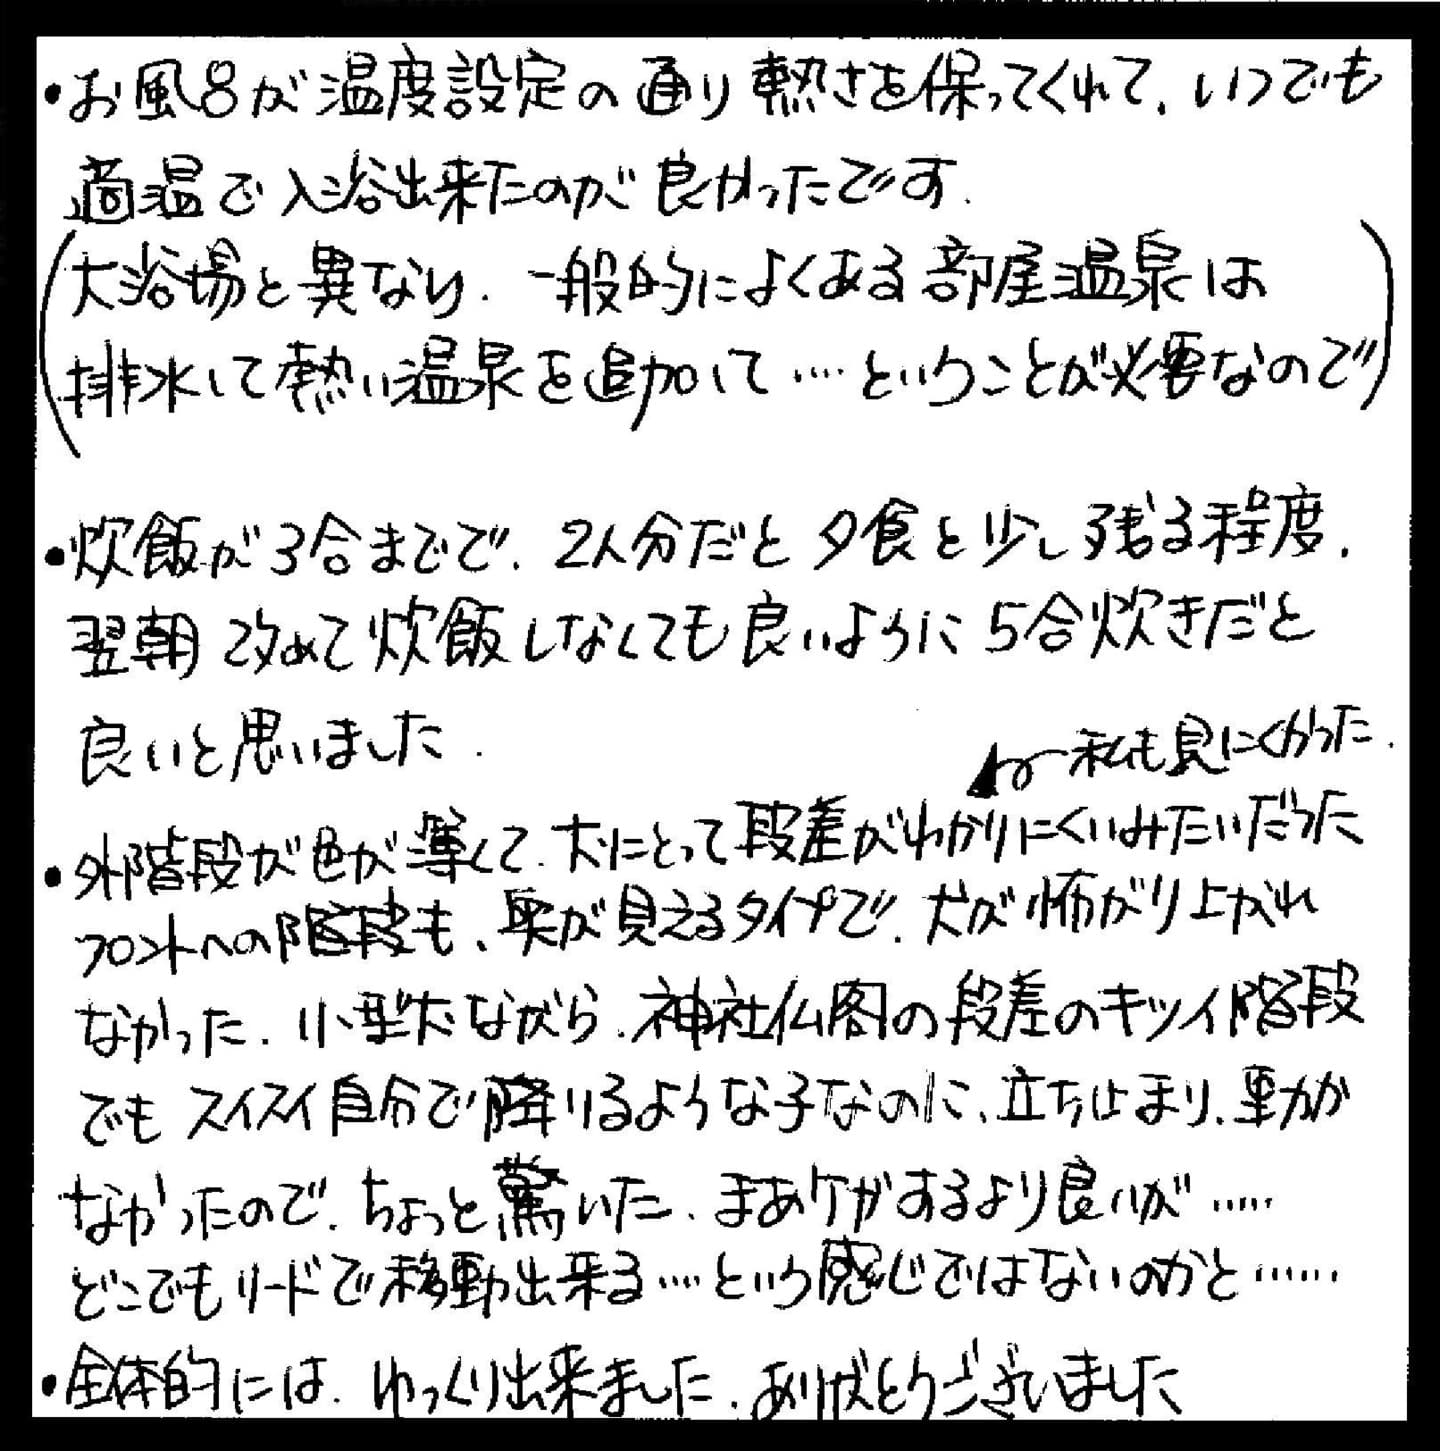 ・お風呂が温度設定の通り熱さを保ってくれて、いつでも
適温で入浴出来たのが良かったです.
(大浴場と異なり、一般的によくある部屋温泉は
排水して熱い温泉を追加して…ということが必要なので)
・炊飯が3合までで、2人分だと夕食と少し残る程度.
翌朝改めて炊飯しなくても良いように5合炊きだと
良いと思いました.
私も見にくかった.
・外階段が色が薄くて、犬にとって段差がわかりにくいみたいだった
フロントへの階段も、裏が見えるタイプで、犬が怖がり上がれ
なかった.小型犬ながら、神社仏閣の段差のキツイ階段
でもスイスイ自分で降りるような子なのに、立ち止まり、動か
なかったので、ちょっと驚いた.まあケガするより良いが……
どこでもリードで移動出来る…という感じではないのかと……
・全体的には、ゆっくり出来ました.ありがとうございました